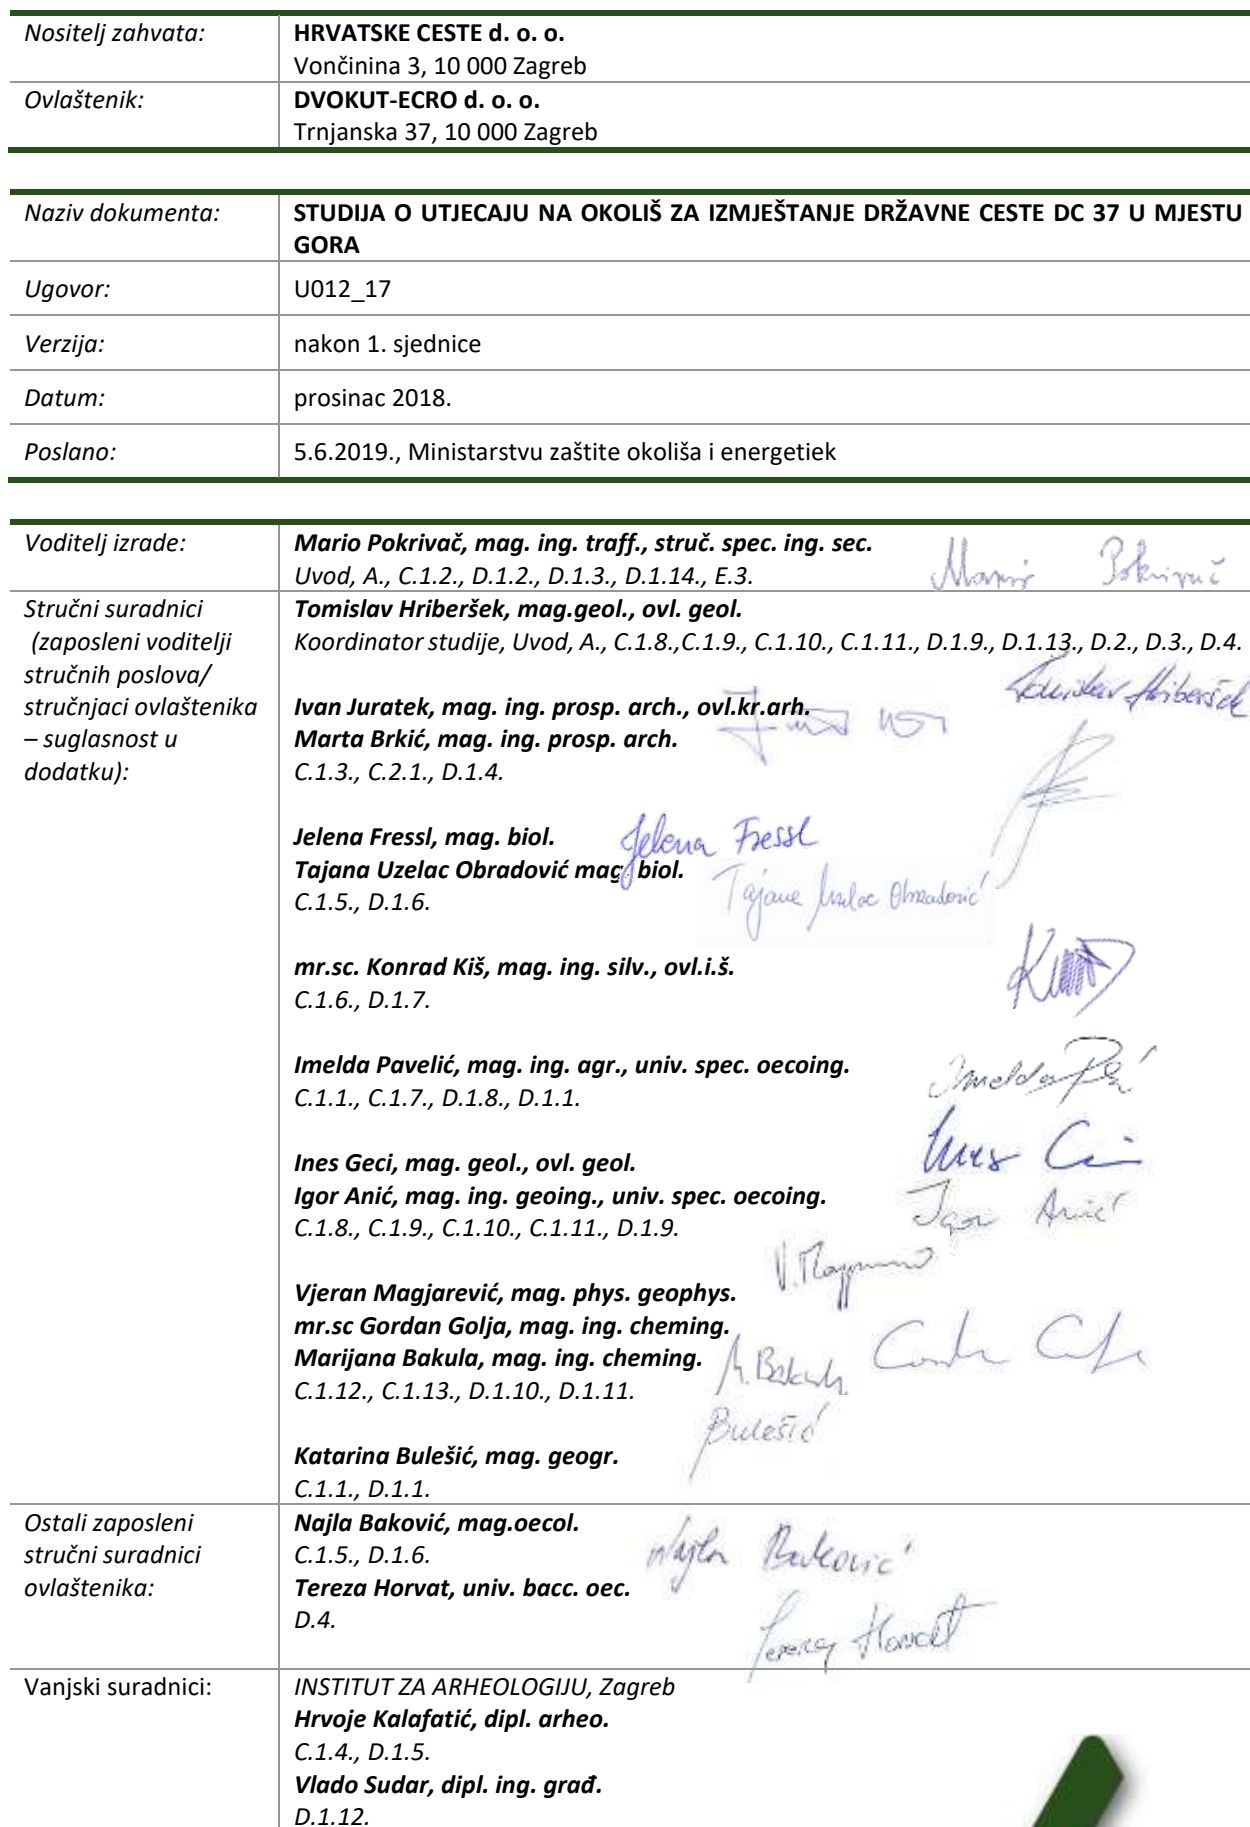 Nositelj zahvata: HRVATSKE CESTE d. o. o.
Vončinina 3, 10 000 Zagreb
Ovlaštenik: DVOKUT-ECRO d. o. o.
Trnjanska 37, 10 000 Zagreb
Naziv dokumenta: STUDIJA O UTJECAJU NA OKOLIŠ ZA IZMJEŠTANJE DRŽAVNE CESTE DC 37 U MJESTU
GORA
Ugovor: U012_17
Verzija: nakon 1. sjednice
Datum: prosinac 2018.
Poslano: 5.6.2019., Ministarstvu zaštite okoliša i energetiek
Voditelj izrade: Mario Pokrivač, mag. ing. traff., struč. spec. ing. sec.
Uvod, A., C.1.2., D.1.2., D.1.3., D.1.14., E.3.
Mario Pokrivač
Stručni suradnici
(zaposleni voditelji
stručnih poslova/
stručnjaci ovlaštenika
– suglasnost u
dodatku):
Tomislav Hriberšek, mag.geol., ovl. geol.
Koordinator studije, Uvod, A., C.1.8.,C.1.9., C.1.10., C.1.11., D.1.9., D.1.13., D.2., D.3., D.4.
Tomislav Hriberšek
Ivan Juratek, mag. ing. prosp. arch., ovl.kr.arh.
Marta Brkić, mag. ing. prosp. arch.
C.1.3., C.2.1., D.1.4.
Jelena Fressl, mag. biol.
Jelena Fressl
Tajana Uzelac Obradović mag. biol.
Tajana Uzelac Obradović
C.1.5., D.1.6.
mr.sc. Konrad Kiš, mag. ing. silv., ovl.i.š.
C.1.6., D.1.7.
Imelda Pavelić, mag. ing. agr., univ. spec. oecoing.
Imelda
C.1.1., C.1.7., D.1.8., D.1.1.
Ines Geci, mag. geol., ovl. geol.
Ines
Igor Anić, mag. ing. geoing., univ. spec. oecoing.
Igor Anić
C.1.8., C.1.9., C.1.10., C.1.11., D.1.9.
Vjeran Magjarević, mag. phys. geophys.
mr.sc Gordan Golja, mag. ing. cheming.
Marijana Bakula, mag. ing. cheming.
M. Bakula
C.1.12., C.1.13., D.1.10., D.1.11.
Bulešić
Katarina Bulešić, mag. geogr.
C.1.1., D.1.1.
Ostali zaposleni
stručni suradnici
ovlaštenika:
Najla Baković, mag.oecol.
Najla Baković
C.1.5., D.1.6.
Tereza Horvat, univ. bacc. oec.
Tereza Horvat
D.4.
Vanjski suradnici: INSTITUT ZA ARHEOLOGIJU, Zagreb
Hrvoje Kalafatić, dipl. arheo.
C.1.4., D.1.5.
Vlado Sudar, dipl. ing. građ.
D.1.12.